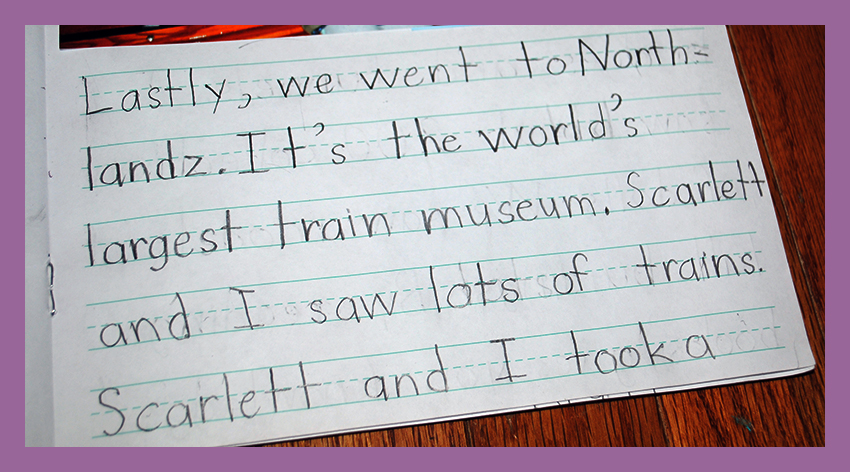 Lastly, we went to North=
landz. It's the world's
largest train museum. Scarlett
and I saw lots of trains.
Scarlett and I took a